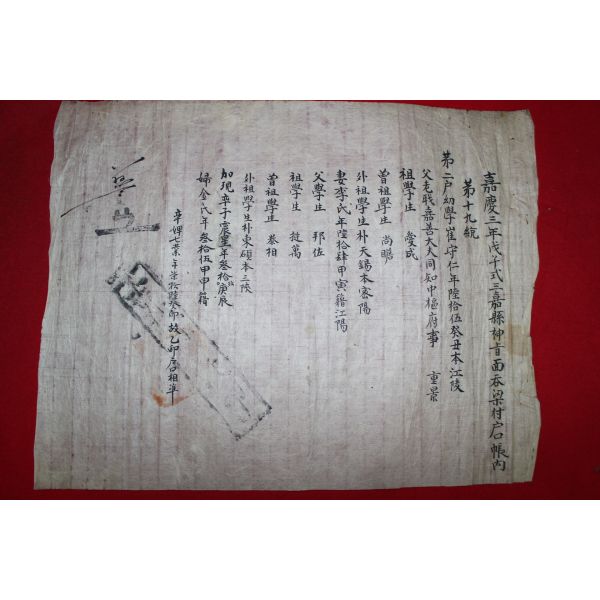 嘉慶三年戊午式三嘉縣神旨面吞梁村戶口帳內
第十九統
第二戶幼學崔宇仁年陸拾伍癸丑本江陵
父老職嘉善大夫同知中樞府事 重景
祖學生 愛成
曾祖學生 尚
外祖學生朴天錫本密陽
妻李氏年陸拾肆甲寅籍江陽
父學生 邦佐
祖學生 萬
曾祖學生 泰相
外祖學生朴東碩本三陵
加現率子 年叁拾 庚辰
婦金氏年叁拾伍甲申籍
率婢七葉年柒拾陸癸卯故乙卯戶相準